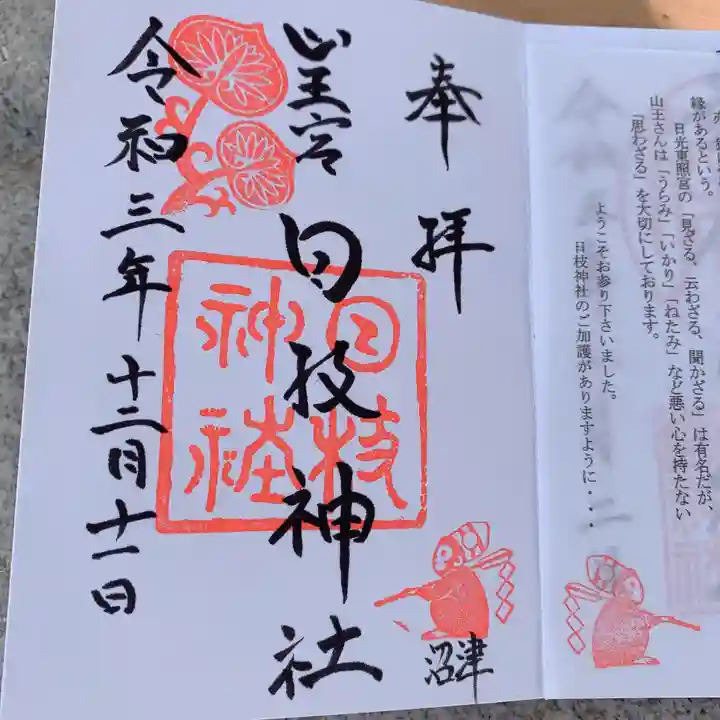 奉拝
山王宮
日枝神社
沼津
令和三年十二月十一日
日枝神社
縁があるという。
日光東照宮の「見ざる、云わざる、聞かざる」は有名だが、
山王さんは「うらみ」「いかり」「ねたみ」など悪い心を持たない
「思わざる」を大切にしております。
ようこそお参り下さいました。
日枝神社のご加護がありますように・・・